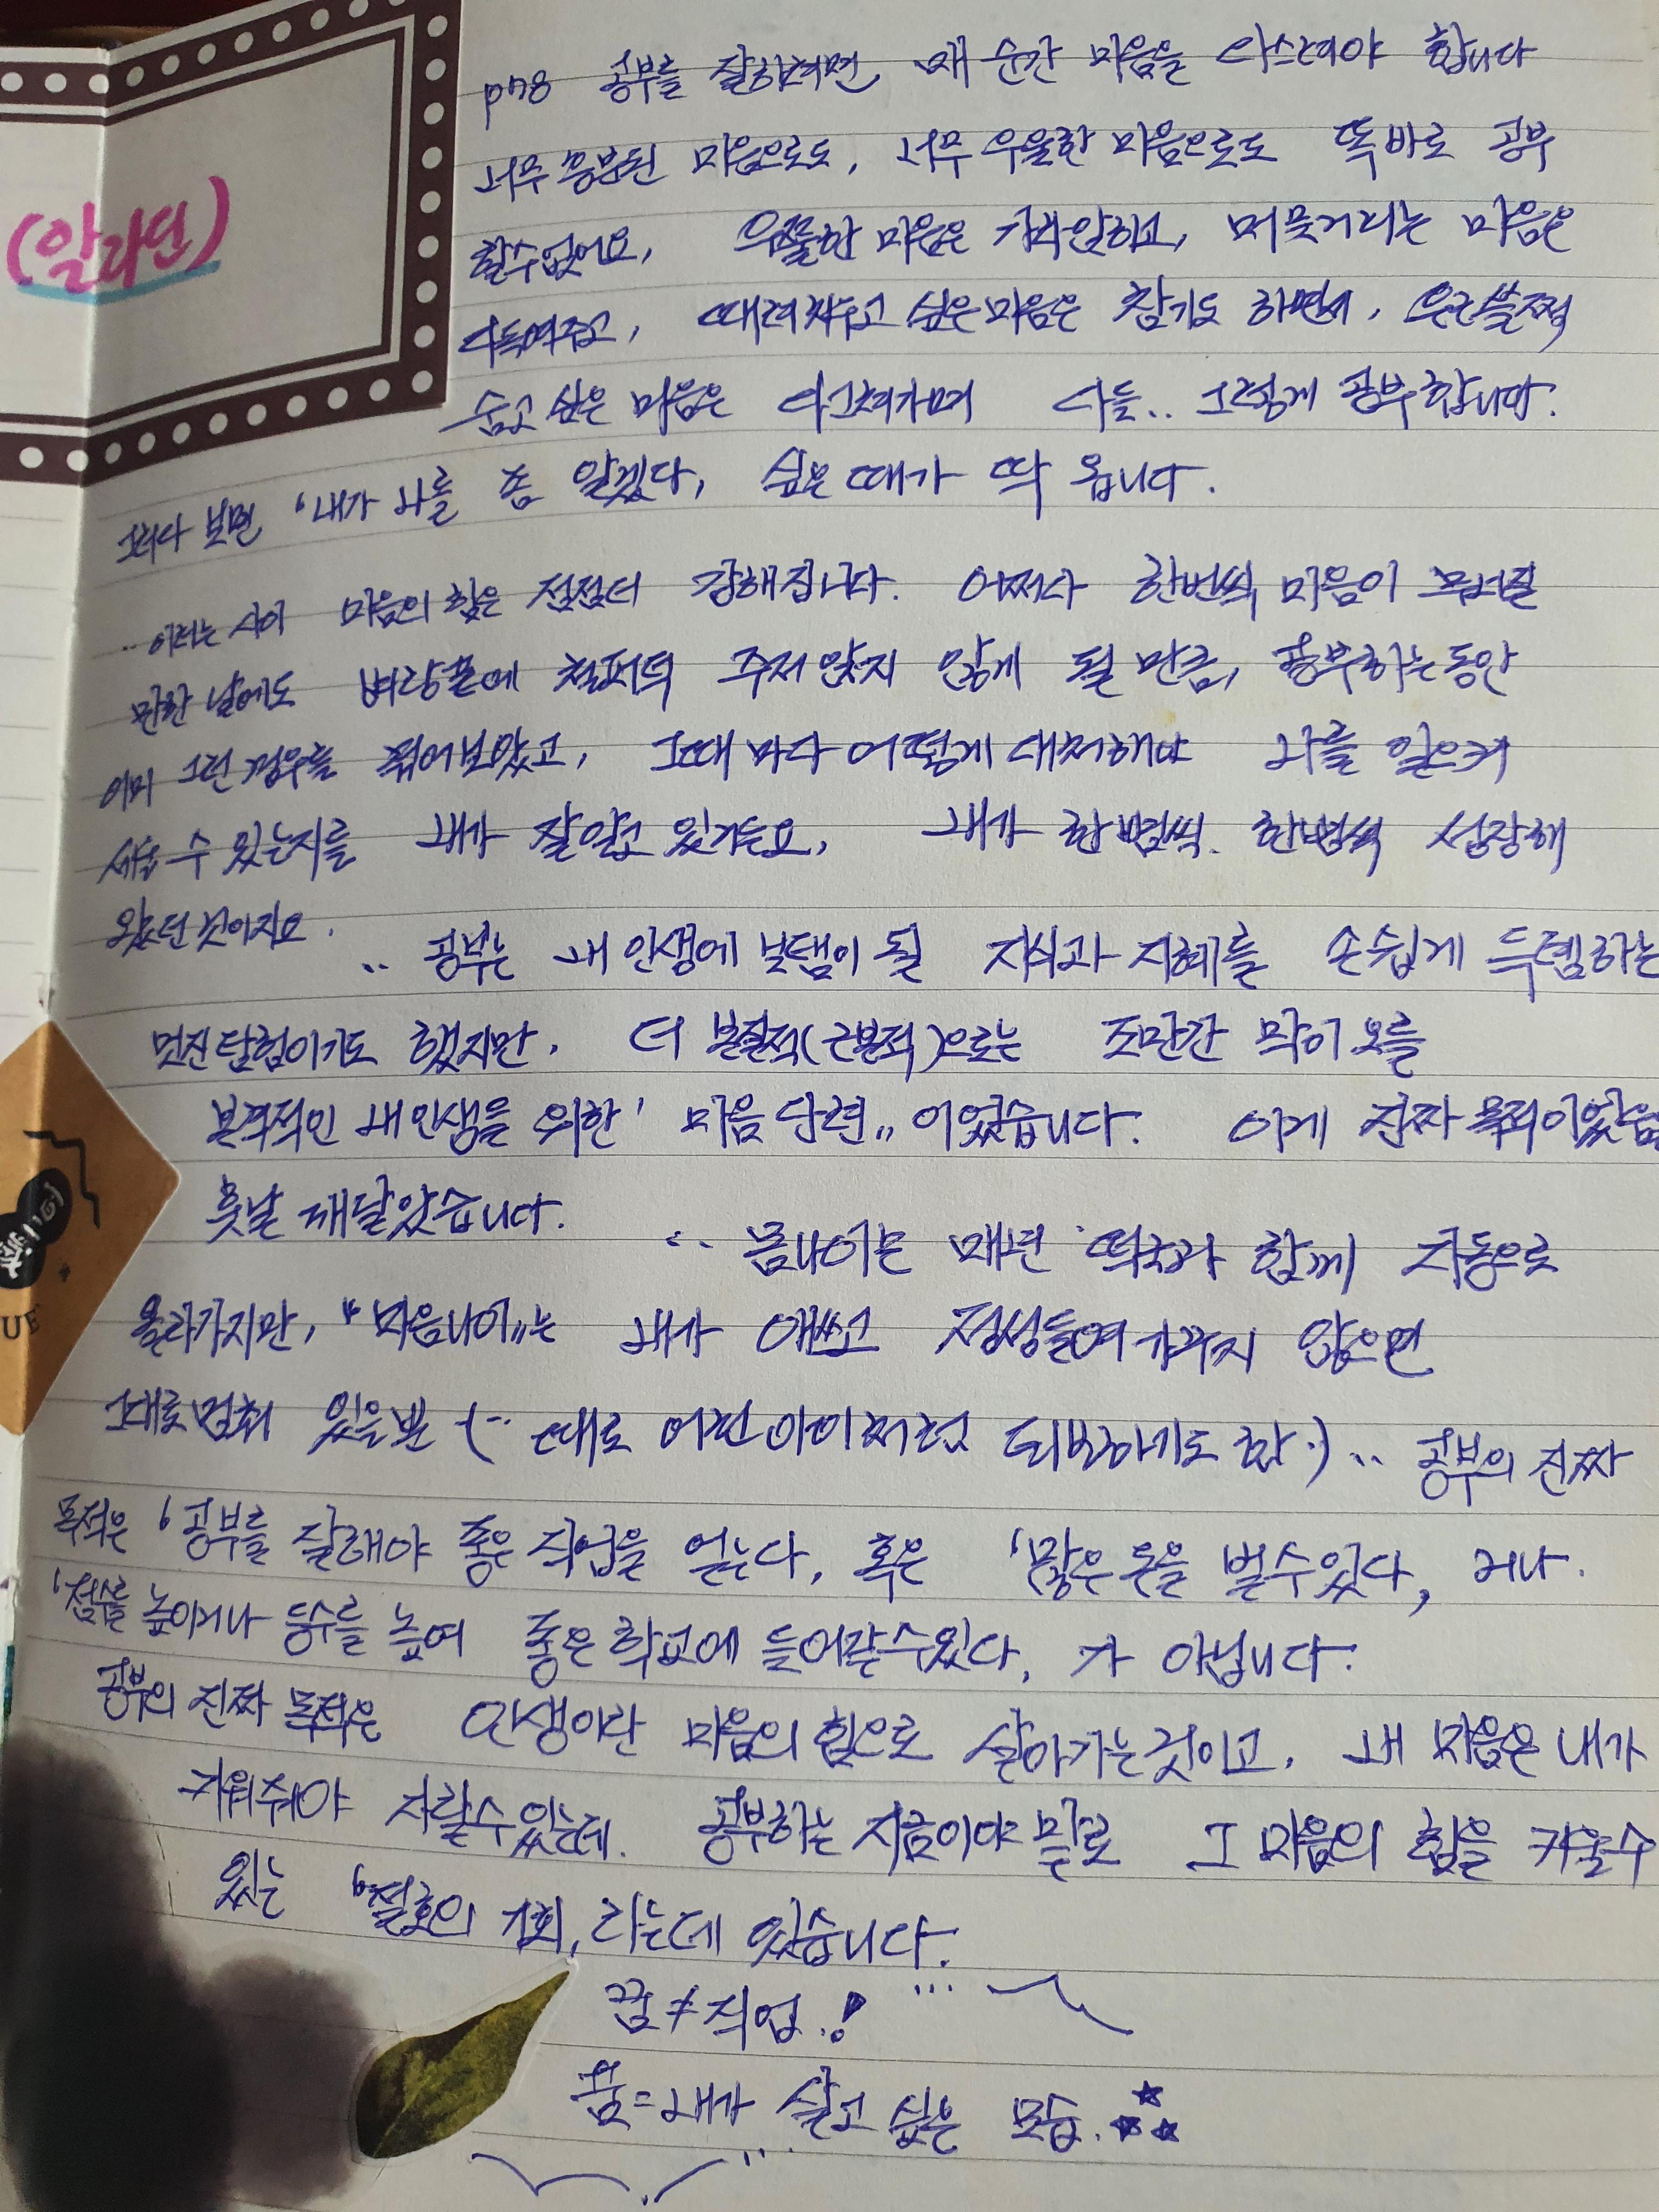 (알라딘)
p78 공부를 잘하려면, 매 순간 마음을 다스려야 합니다
너무 흥분된 마음으로도, 너무 우울한 마음으로도 똑바로 공부
할수없어요, 우쭐한 마음은 가라앉히고, 머뭇거리는 마음은
다독여주고, 때려치우고 싶은마음은 참기도 하면서, 은근슬쩍
숨고 싶은 마음은 다그쳐가며 다들.. 그렇게 공부합니다.
그러다 보면 '내가 나를 좀 알겠다, 싶은 때가 딱 옵니다.
..이러는 사이 마음의 힘은 점점더 강해집니다. 어쩌다 한번씩 마음이 무너질
만한 날에도 벼랑끝에 철퍼덕 주저앉지 않게 될 만큼, 공부하는동안
이미 그런 경우를 겪어보았고, 그때마다 어떻게 대처해야 나를 일으켜
세울 수 있는지를 내가 잘알고 있거든요, 내가 한뼘씩. 한뼘씩 성장해
왔던 것이지요.
.. 공부는 내 인생에 보탬이 될 지식과 지혜를 손쉽게 득템하는
멋진 탐험이기도 했지만, 더 본질적(근본적)으로는 조만간 막이 오를
본격적인 내인생을 위한 '마음 단련,, 이었습니다. 이게 진짜 목적이었음
훗날 깨달았습니다.
.. 몸나이는 매년 떡국과 함께 자동으로
올라가지만, "마음나이,,는 내가 애쓰고 정성들여 가꾸지 않으면
그대로멈춰 있을뿐 (.. 때로 어린아이처럼 퇴보하기도 함.) .. 공부의 진짜
목적은 '공부를 잘해야 좋은 직업을 얻는다, 혹은 '많은 돈을 벌수있다, 거나.
'점수를 높이거나 등수를 높여 좋은학교에 들어갈수있다, 가 아닙니다.
공부의 진짜 목적은 인생이란 마음의 힘으로 살아가는것이고, 내 마음은 내가
키워줘야 자랄수있는데. 공부하는 지금이야 말로 그 마음의 힘을 키울수
있는 '절호의 기회, 라는데 있습니다.
꿈≠직업.!
꿈=내가 살고 싶은 모습.
UE